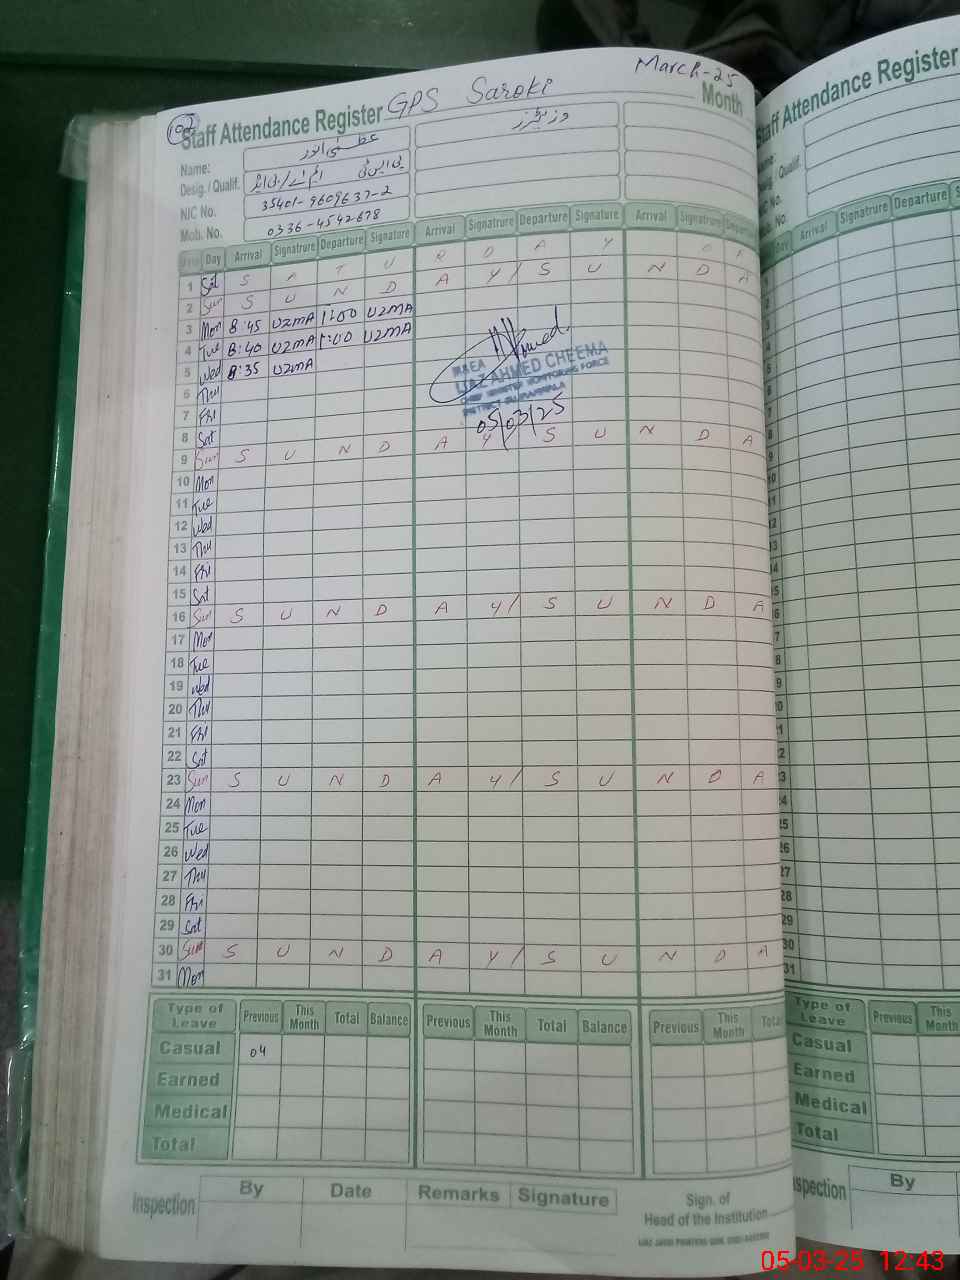 March-25
102 Staff Attendance Register GPS Saroki Month
Name: عظمیٰ انور وزیٹرز
Desig. / Qualif.
NIC No. 35401-9609637-2
Mob. No. 0336-4542678
Day Arrival Signatrure Departure Signature Arrival Signatrure Departure Signature Arrival Signatrure Departure
1 Sat S A T U R D A Y
2 Sun S U N D A Y / S U N D A
3 Mon 8:45 UZMA 1:00 UZMA
4 Tue 8:40 UZMA 1:00 UZMA
5 Wed 8:35 UZMA
6 Thu
7 Fri
8 Sat
9 Sun S U N D A Y S U N D A
10 Mon
11 Tue
12 Wed
13 Thu
14 Fri
15 Sat
16 Sun S U N D A Y / S U N D A
17 Mon
18 Tue
19 Wed
20 Thu
21 Fri
22 Sat
23 Sun S U N D A Y / S U N D A
24 Mon
25 Tue
26 Wed
27 Thu
28 Fri
29 Sat
30 Sun S U N D A Y / S U N D A
31 Mon
MEA
IJAZ AHMED CHEEMA
CHIEF MINISTER MONITORING FORCE
DISTRICT GUJRANWALA
05/03/25
Type of Leave Previous This Month Total Balance Previous This Month Total Balance Previous This Month Total
Casual 04
Earned
Medical
Total
Inspection By Date Remarks Signature
Sign. of
Head of the Institution
Staff Attendance Register
Day Arrival Signatrure Departure
Type of Leave Previous This Month
Casual
Earned
Medical
Total
Inspection By
05-03-25 12:43